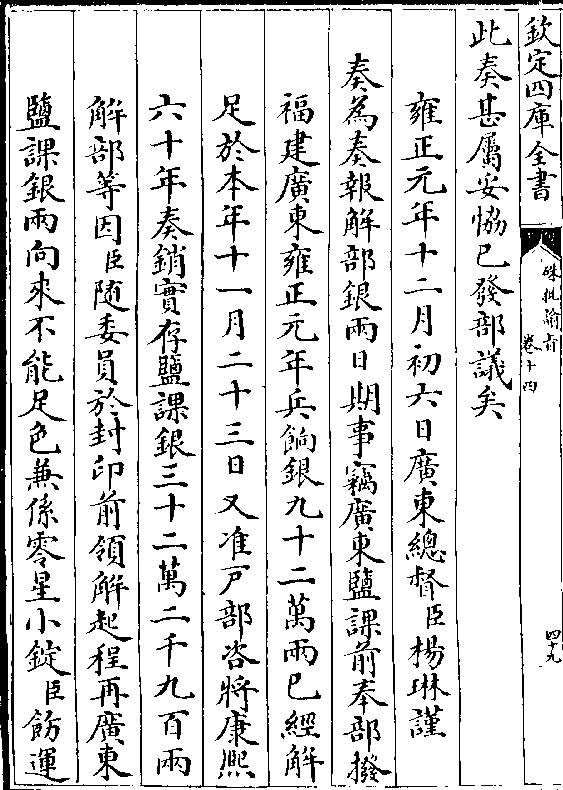 欽定四庫全書
硃批諭旨
卷十四
四十九
此奏甚屬妥恊已發部議矣
雍正元年十二月初六日廣東總督臣楊琳謹
奏為奏報解部銀兩日期事竊廣東鹽課前奉部撥
福建廣東雍正元年兵餉銀九十二萬兩已經解
足於本年十一月二十三日又准戸部咨將康熙
六十年奏銷實存鹽課銀三十二萬二千九百兩
解部等因臣隨委員於封印前領解起程再廣東
鹽課銀兩向來不能足色兼係零星小錠臣飭運